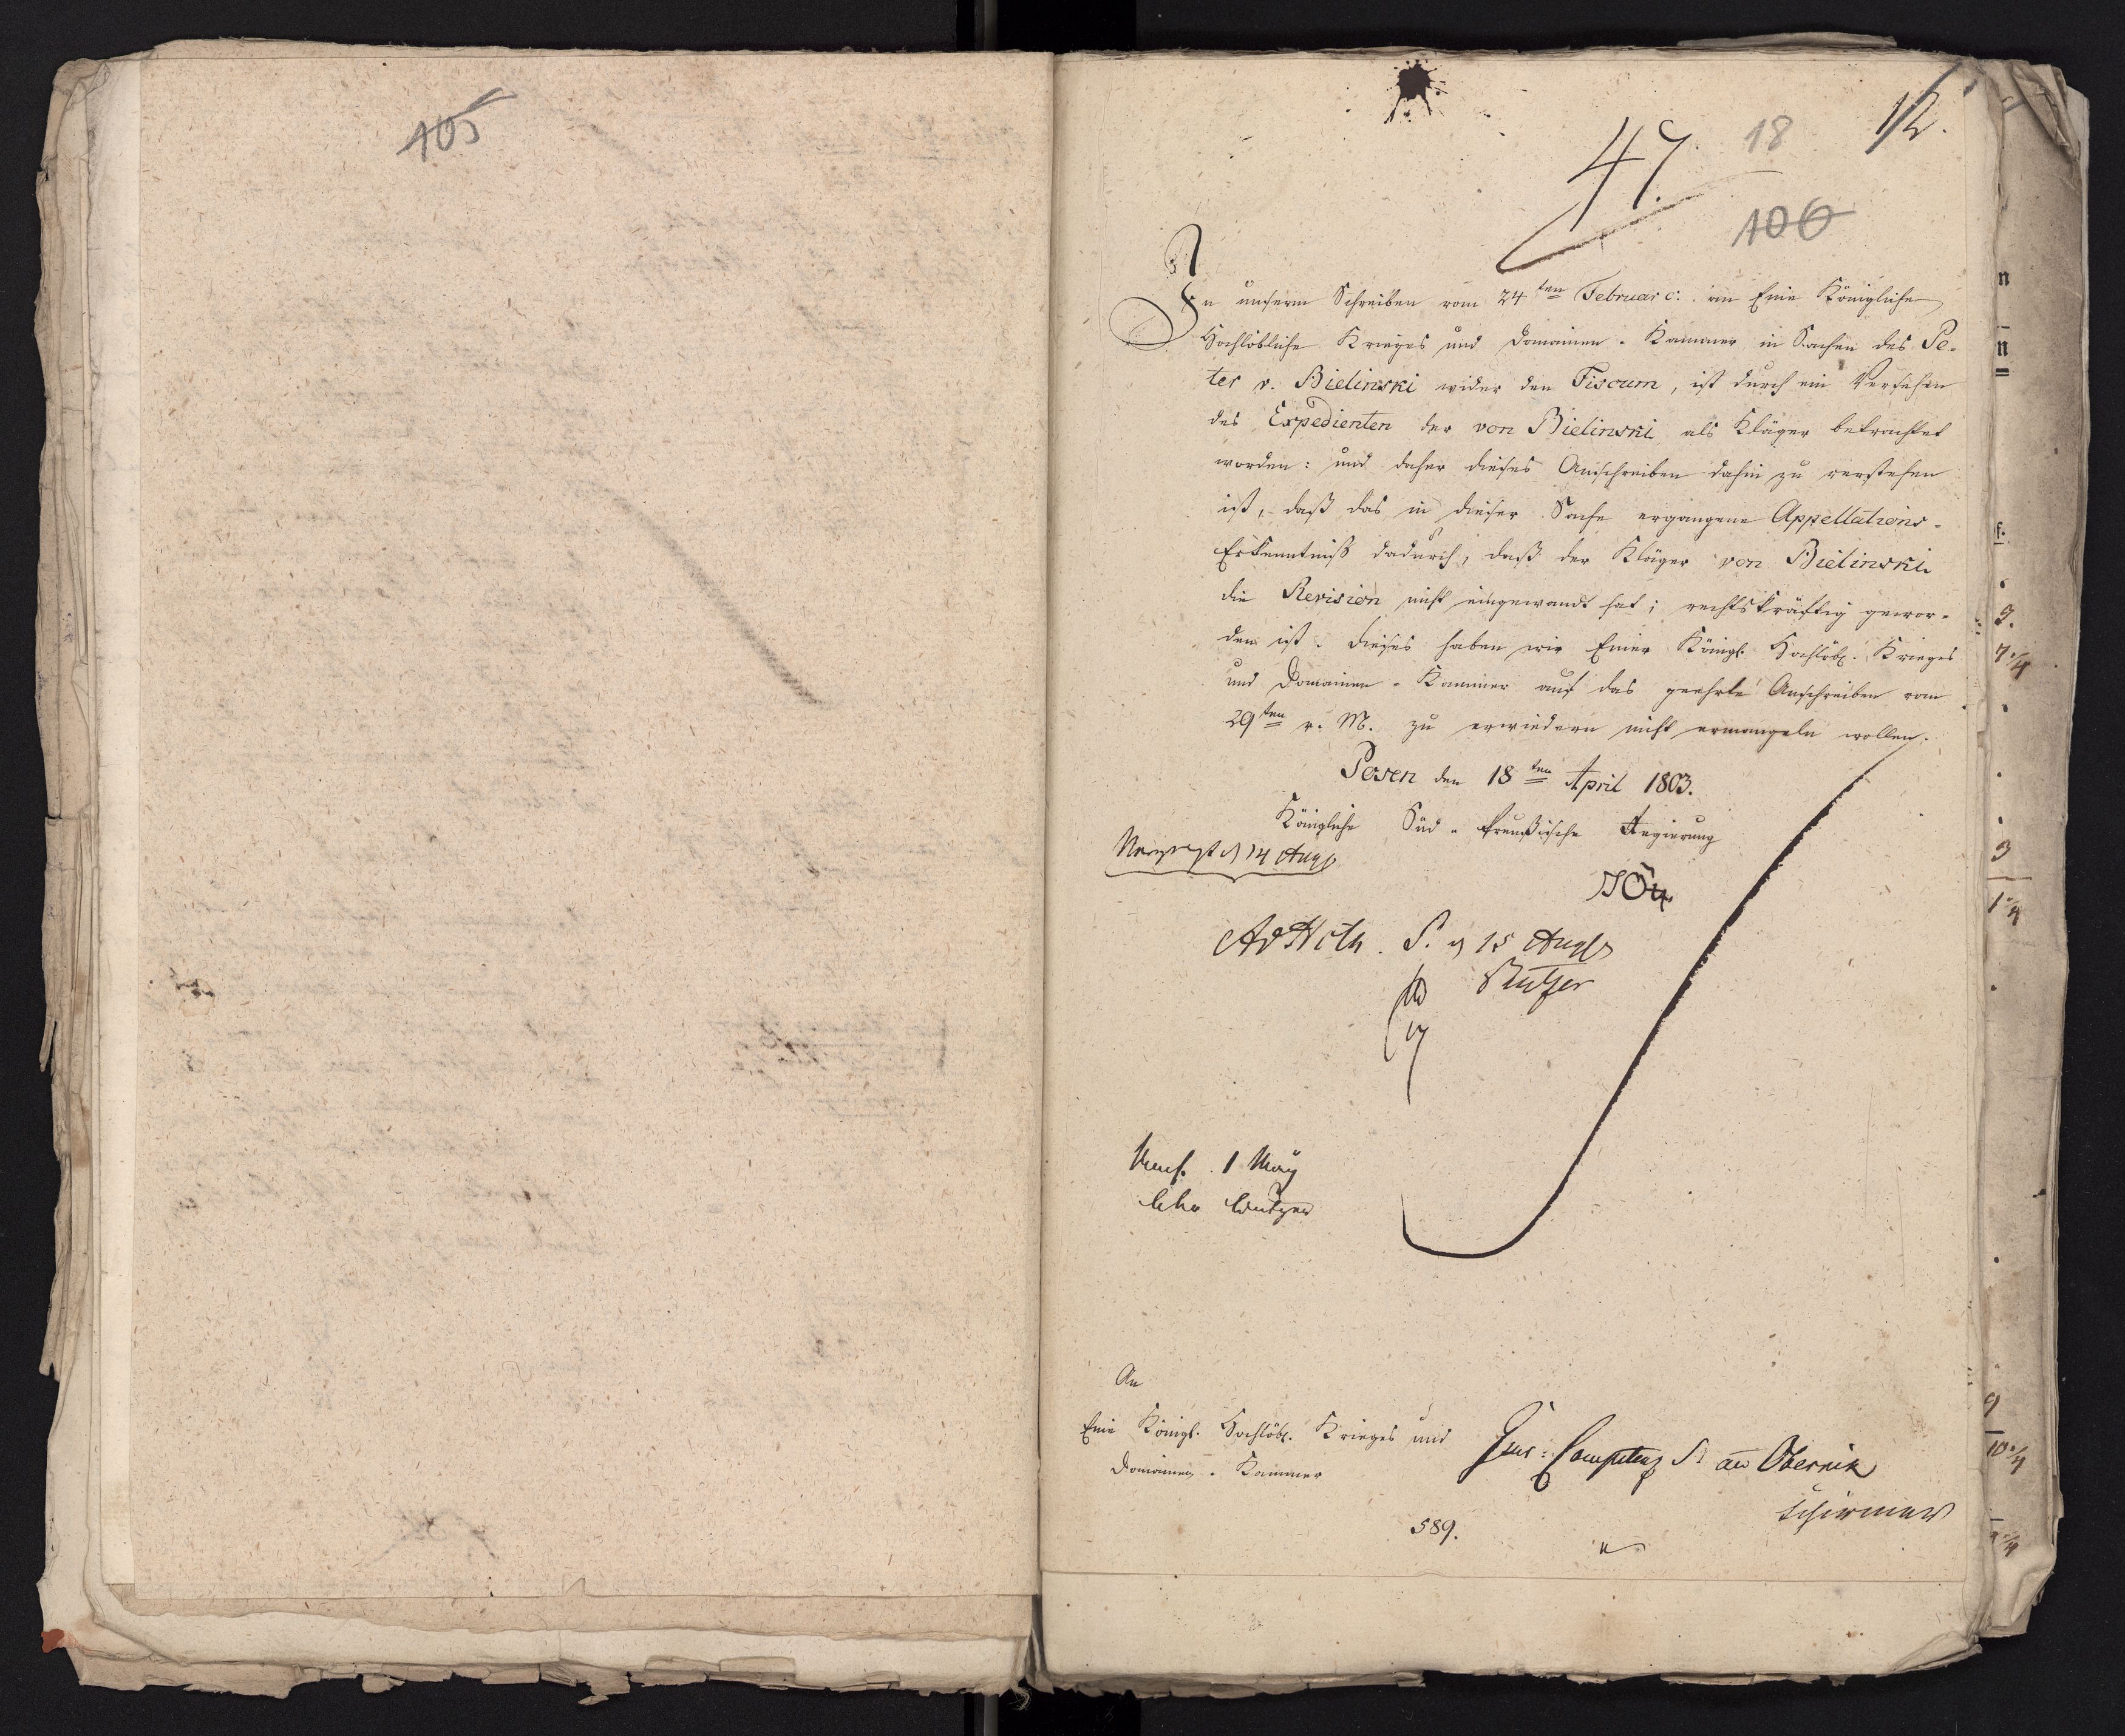 105
47.
18
12.
106
In unserm Schreiben vom 24ten Februar c: an Eine Königliche
Hochlöbliche Krieges und Domainen-Kammer in Sachen des Pe-
ter v. Bielinski wider den Fiscum, ist durch ein Versehen
des Expedienten der von Bielinski als Kläger betrachtet
worden: und daher dieses Anschreiben dahin zu verstehen
ist, daß das in dieser Sache ergangene Appellations-
Erkenntniß dadurch, daß der Kläger von Bielinski
die Revision nicht eingewandt hat; rechtskräftig gewor-
den ist. Dieses haben wir Einer Königl. Hochlöbl. Krieges
und Domainen-Kammer auf das geehrte Anschreiben vom
29ten v. M. zu erwiedern nicht ermangeln wollen.
Posen den 18ten April 1803.
Königliche Süd-Preußische Regierung
14 Aug
S. 15 Aug
1 May
An
Eine Königl. Hochlöbl. Krieges und
Domainen-Kammer
Competenz an Obernik
Schirmer
589.